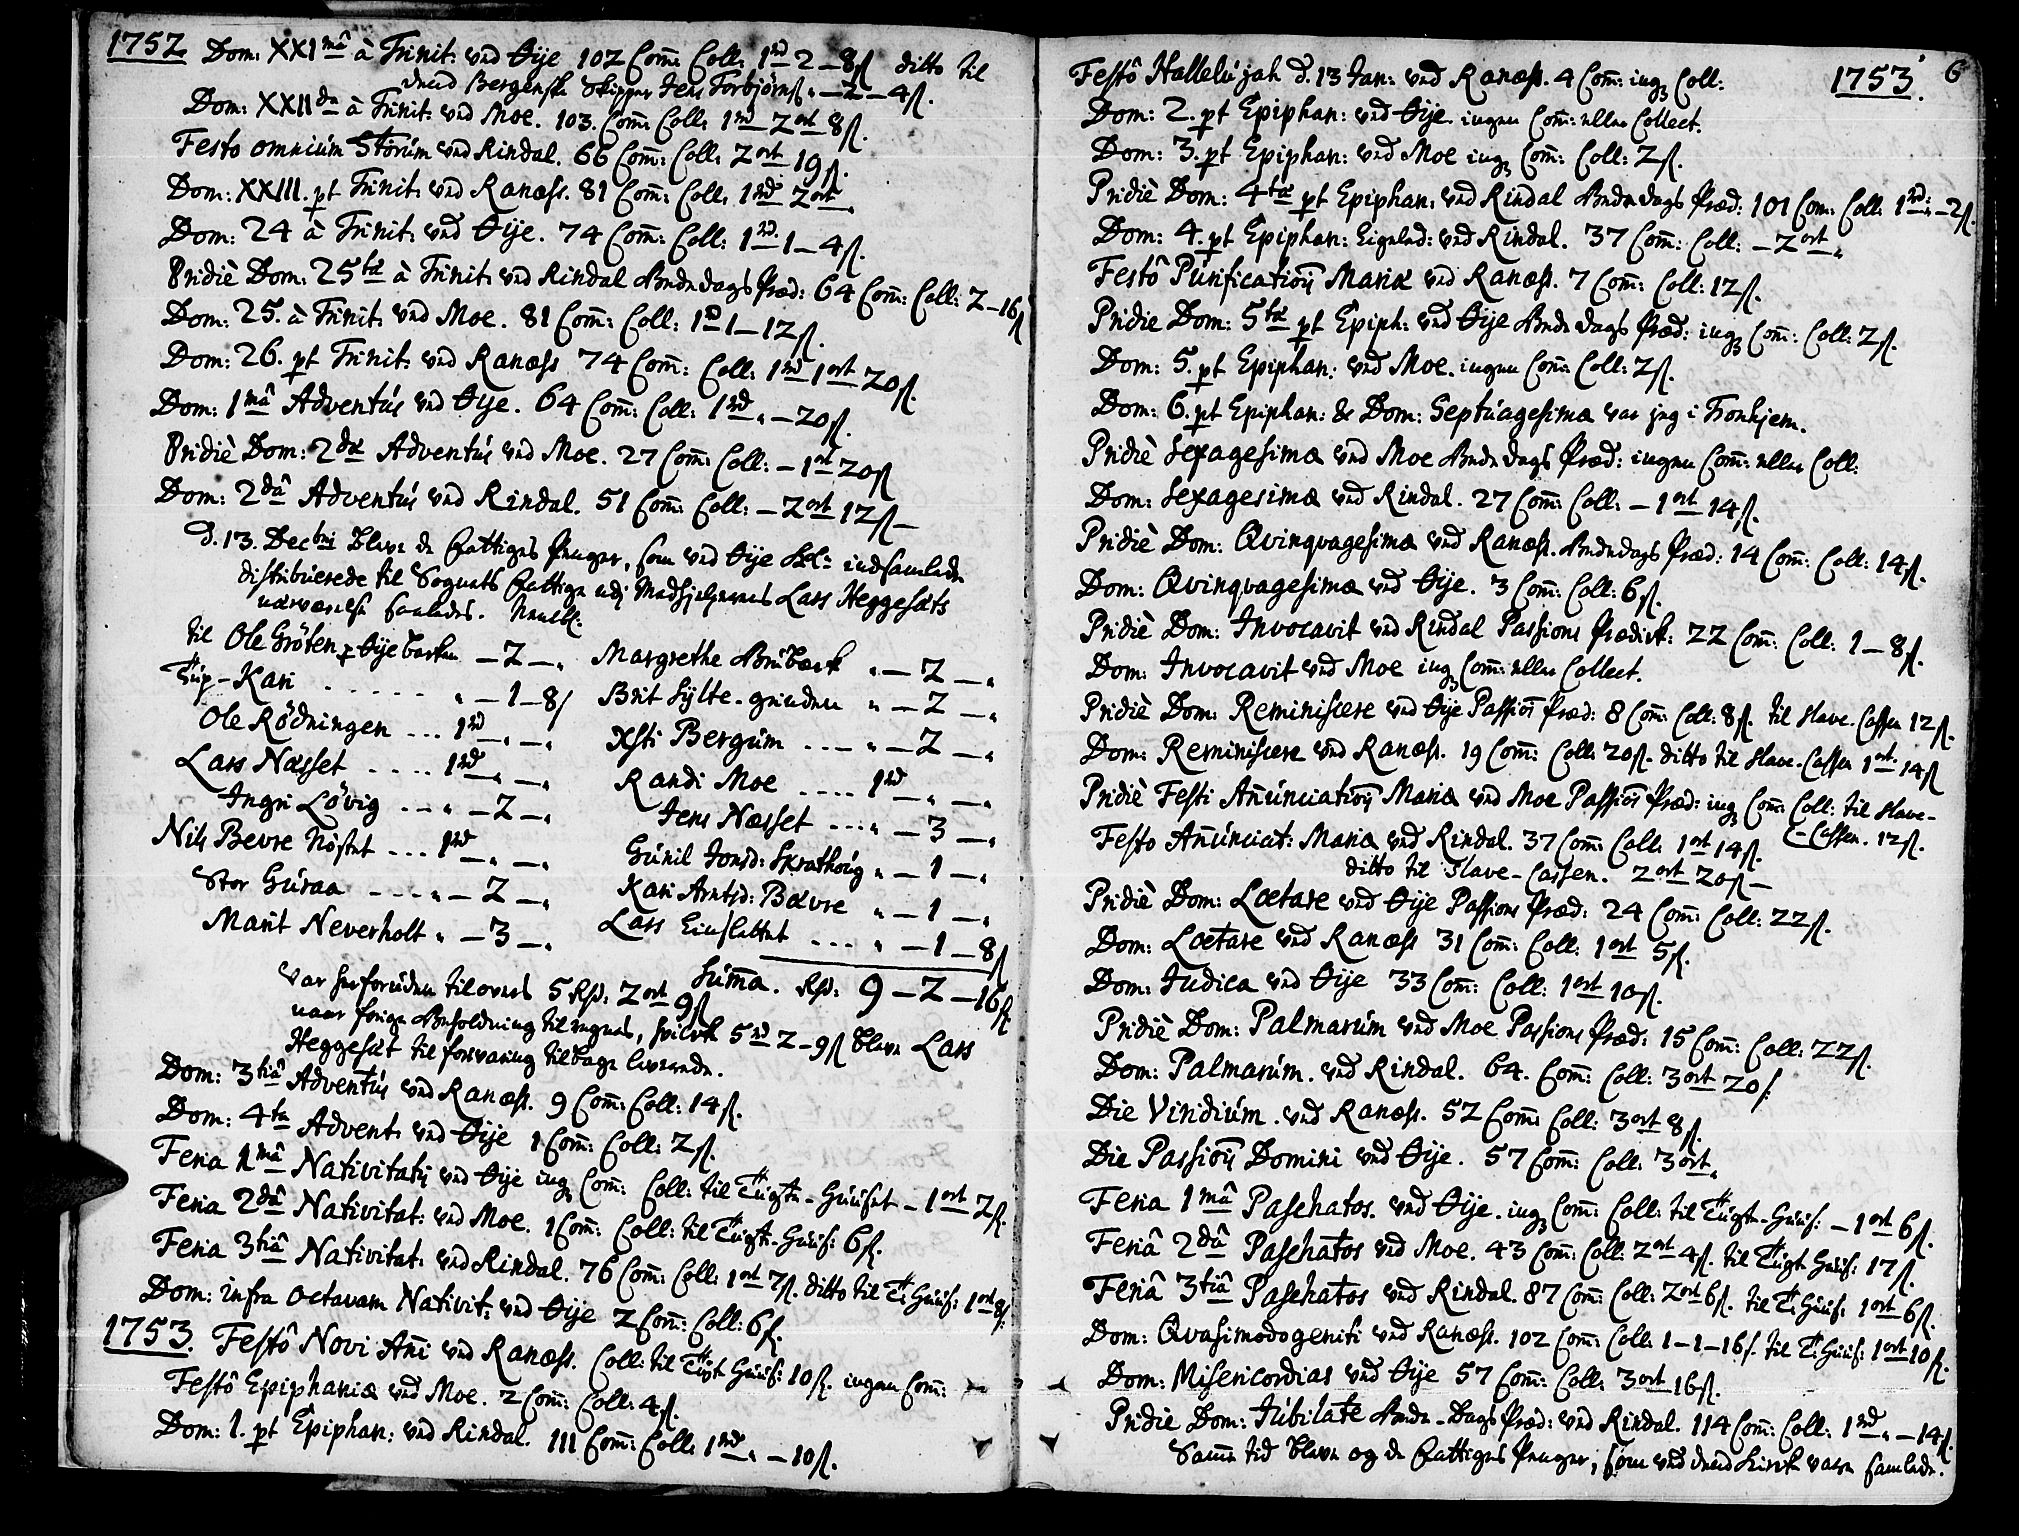 1752 Dom: XXI mâ à Trinit: ved Øije 102 Com: Coll: 1rd 2–8ß ditto til
Bergenske Skipper Jens Torbjørns: –2–4ß.
Dom: XXII da à Trinit: ved Moe. 103. Com: Coll: 1rd 2ort 8ß.
Festo omnium Storum ved Rindal. 66 Com: Coll: 2ort 19ß.
Dom: XXIII. pt Trinit: ved Ranæss. 81 Com: Coll: 1rd 2ort.
Dom: 24 à Trinit: ved Øije. 74 Com: Coll: 1rd 1–4ß.
Pridiè Dom: 25tæ à Trinit: ved Rindal Bededags Præd: 64 Com: Coll: 2–16ß
Dom: 25. à Trinit: ved Moe. 81 Com: Coll: 1rd 1–12ß.
Dom: 26. pt Trinit: ved Ranæss 74 Com: Coll: 1rd 1ort 20ß.
Dom: 1mâ Adventús ved Øije. 64 Com: Coll: 1rd „ –20ß.
Pridiè Dom: 2dæ Adventús ved Moe. 27 Com: Coll: –1ort 20ß
Dom: 2dâ Adventús ved Rindal. 51 Com: Coll: –2ort 12ß–
d. 13. Decbri bleve de Fattiges Penger, som ved Øije indsamlede
distribuerede til Sognets Fattige udj Medhjelpernes Lars Heggesæts
nærværelse saaledes. Neml:
til Ole Gröten Øijebacken –2–„ Margrethe Brúbæck „–2–„
Túp-Kari . . . . . . „–1–8ß Brit Sylte-grinden „–2–„
Ole Rødningen ... 1rd „–„ Xsti Bergúm ... „–2–„
Lars Næsset .... 1rd „–„ Randi Moe .... 1rd „–„
Ingri Løvig ... „–2–„ Jens Næsset ... „–3–„
Nils Bevre ... 1rd „–„ Gúnil Jonsd: Skrathoúg „–1–„
Stor Gúraa .... „–2–„ Kari Arntsd: Bævre „–1–„
Marit Neverholt „–3–„ Lars .... „–1–8ß
Súmma. Rd: 9–2–16ß
var herforuden tilovers 5 Rd: 2ort 9ß
naar forige Beholdning tilregnes, hvilcke 5rd 2–9ß bleve Lars
Heggesæt til forvaring tilbage leverede.
Dom: 3tiâ Adventús ved Ranæss. 9 Com: Coll: 14ß.
Dom: 4ta Advent: ved Øije 1 Com: Coll: 2ß.
Feria 1mâ Nativitatis ved Øije ing Com: Coll: til Túgte-Húúset –1ort 2ß.
Feria 2dâ Nativitat: ved Moe. 1 Com: Coll: til Túgt-Húús: 6ß.
Feria 3tiâ Nativitat: ved Rindal. 76 Com: Coll: 1ort 7ß. ditto til T: Húús: 1ort 8ß.
Dom: infra octavam Nativit: ved Øije 2 Com: Coll: 6ß.
1753. Festô Novi Ani ved Ranæss. Coll: til Túgt Húús: 10ß. ingen Com:
Festô Epiphaniæ ved Moe. 2 Com: Coll: 4ß.
Dom: 1. pt Epiphan: ved Rindal. 111 Com: Coll: 1rd „–10ß.
Festô Hallelújah d. 13 Jan: ved Ranæss. 4 Com: ing Coll: 1753. 6
Dom: 2. pt Epiphan: ved Øije. ingen Com: eller Collect.
Dom: 3. pt Epiphan: ved Moe ing Com: Coll: 2ß.
Pridiè Dom: 4tæ pt Epiphan: ved Rindal Bededags Præd: 101 Com: Coll: 1rd: „–2ß.
Dom: 4. pt Epiphan: ved Rindal. 37 Com: Coll: –2ort „
Festô Púrificationis Mariæ ved Ranæss. 7 Com: Coll: 12ß.
Pridie Dom: 5tæ pt Epiph: ved Øije Bededags Præd: ing Com: Coll: 2ß.
Dom: 5. pt Epiphan: ved Moe. ingen Com: Coll: 2ß.
Dom: 6. pt Epiphan: & Dom: Septúagesimæ var jeg i Tronhjem.
Pridiè Sexagesimæ ved Moe Bededags Præd: ingen Com: eller Coll:
Dom: Sexagesimæ ved Rindal. 27 Com: Coll: –1ort 14ß.
Pridiè Dom: Qvinqvagesimæ ved Ranæss. Bededags Præd: 14 Com: Coll: 14ß.
Dom: Qvinqvagesimæ ved Øije. 3 Com: Coll: 6ß.
Pridiè Dom: Invocavit ved Rindal Passions Prædick: 22 Com: Coll: 1–8ß.
Dom: Invocavit ved Moe ing Com: eller Collect.
Pridiè Dom: Reminiscere ved Øije Passions Præd: 8 Com: Coll: 8ß. til Slave-Cassen 12ß.
Dom: Reminiscere ved Ranæss. 19 Com: Coll: 20ß. ditto til Slave-Cassen 1ort 14ß
Pridiè Festi Anúnciationis Mariæ ved Moe Passions Præd: ing Com: Coll: til Slave-
Cassen. 12ß.
Festo Anúnciat: Mariæ ved Rindal. 37 Com: Coll: 1ort 14ß.
ditto til Slave-Cassen. 2ort 20ß–
Pridiè Dom: Lætare ved Øije Passions Præd: 24 Com: Coll: 22ß.
Dom: Lætare ved Ranæss 31 Com: Coll: 1ort 5ß.
Dom: Judica ved Øije 33 Com: Coll: 1ort 10ß.
Pridiè Dom: Palmarúm ved Moe Passions Præd: 15 Com: Coll: 22ß.
Dom: Palmarúm. ved Rindal. 64. Com: Coll: 3ort 20ß
Die Viridiúm. ved Ranæss. 52 Com: Coll: 3ort 8ß.
Die Passionis Domini ved Øije. 57 Com: Coll: 3ort „
Feria 1mâ Paschatos. ved Øije. ing Com: Coll: til Túgte-Húús: –1ort 6ß.
Feriâ 2dâ Paschatos ved Moe. 43 Com: Coll: 2ort 4ß. til Túgt Húús: 17ß.
Feriâ 3tiâ Paschatos ved Rindal. 87 Com: Coll: 2ort 6ß. til T: Húús: 1ort 6ß.
Dom: Qvasimodogeniti ved Ranæss. 102 Com: Coll: 1–1–16ß. til T: Húús: 1ort 10ß.
Dom: Misericordias ved Øije 57 Com: Coll: 3ort 16ß.
Pridie Dom: Júbilate Bede-Dags Præd: ved Rindal. 114 Com: Coll: 1rd „–14ß.
Samme tid bleve og de Fattiges Penger, som ved dend Kirck vare samlede.